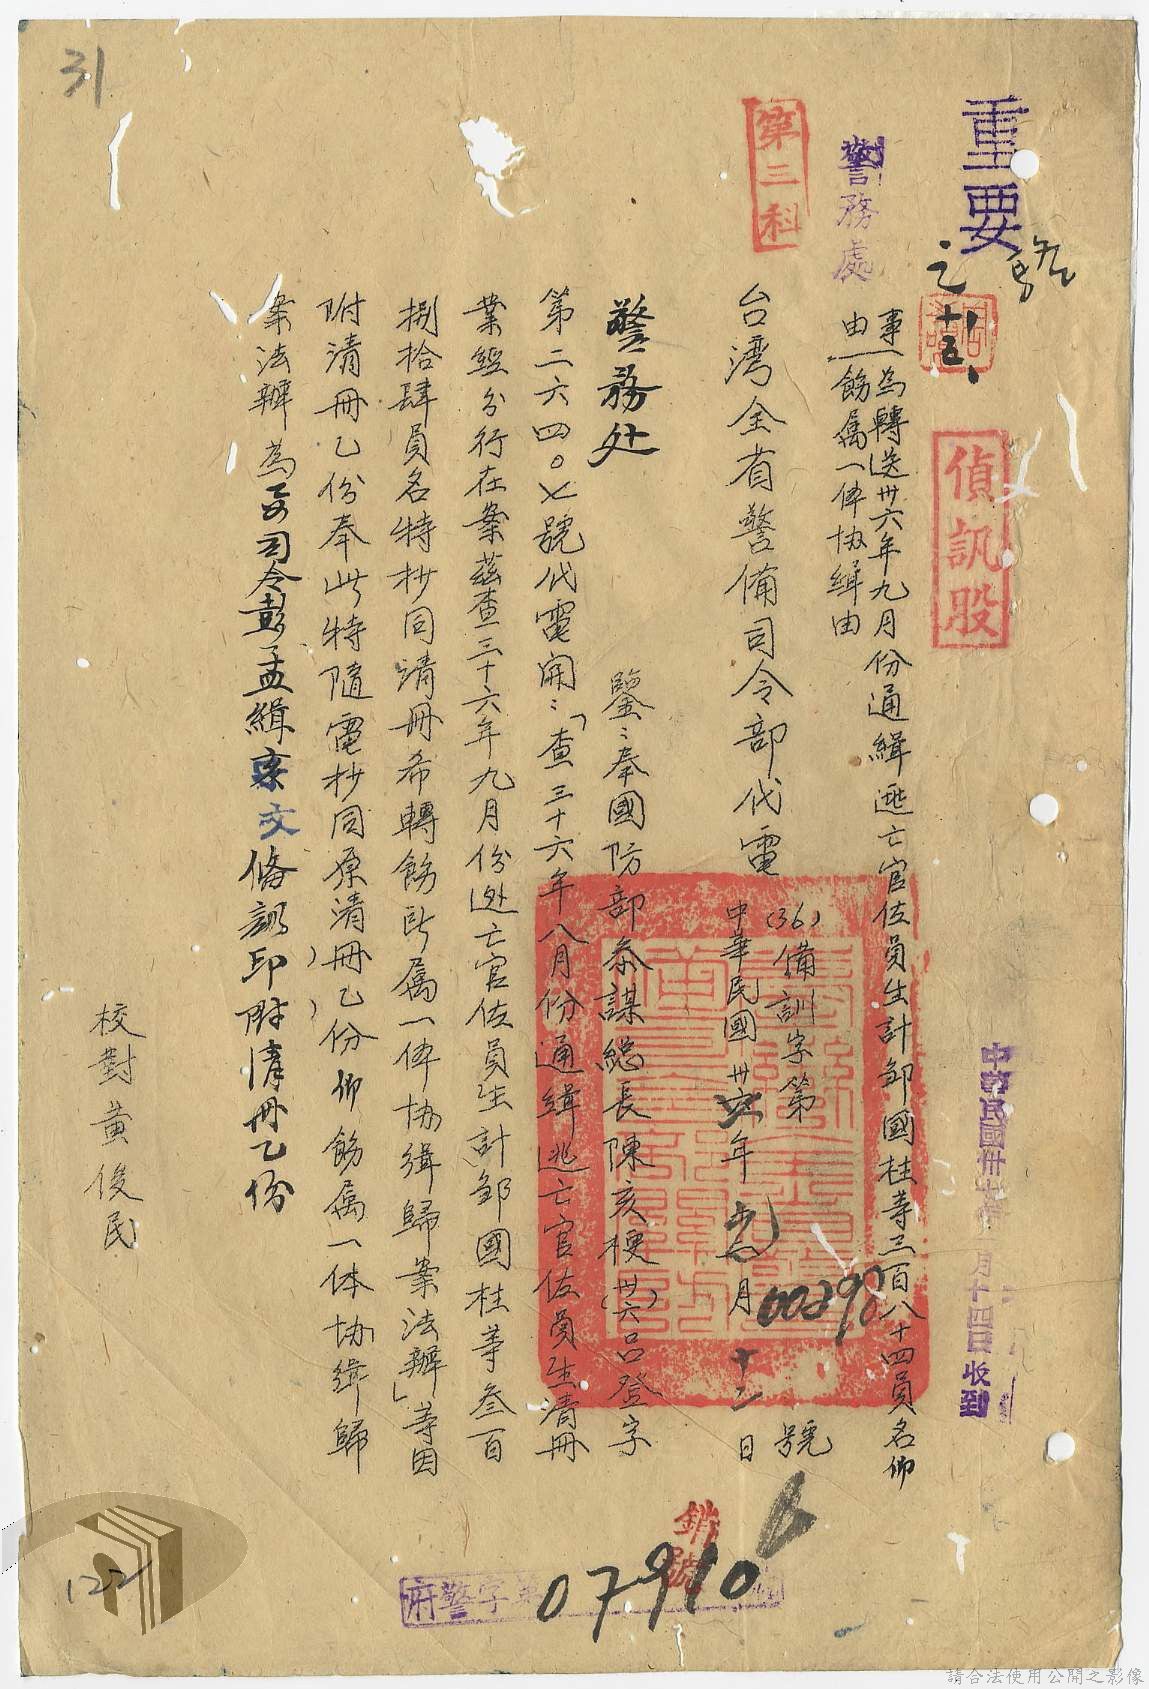 31
重要
警務處
第二科
偵訊股
事由
為轉送卅六年九月份通緝逃亡官佐員生計邹國柱等三百八十四員名仰
飭屬一体协緝由
台湾全省警備司令部代電
(36)備訓字第
00298
號
中華民國卅年月十二日
警務处
鑒:奉國防部參謀総長陳亥梗(卅六)吕登字
第二六四〇七號代電開:「查三十六年八月份通緝逃亡官佐員生清冊
業經分行在案茲查三十六年九月份逃亡官佐員生計邹國柱等叁百
捌拾肆員名特抄同清冊希轉飭所屬一体协緝歸案法辦」等因
附清冊乙份奉此特隨電抄同原清冊乙份仰飭屬一体协緝歸
案法辦為要司令彭孟緝亥文俻訓印附清冊乙份
校對黄俊民
中華民國卅七年一月十四日收到
銷號
府警字第
07910
122
請合法使用公開之影像